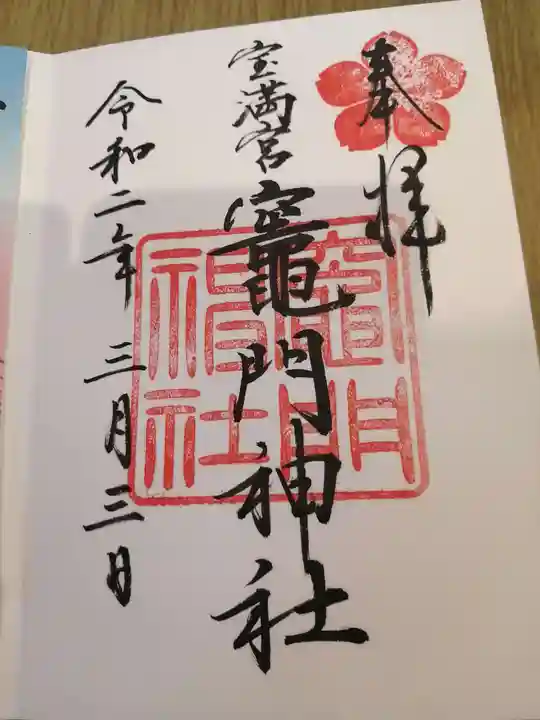 奉拝
宝満宮
竈門神社
竈門神社
令和二年 三月三日